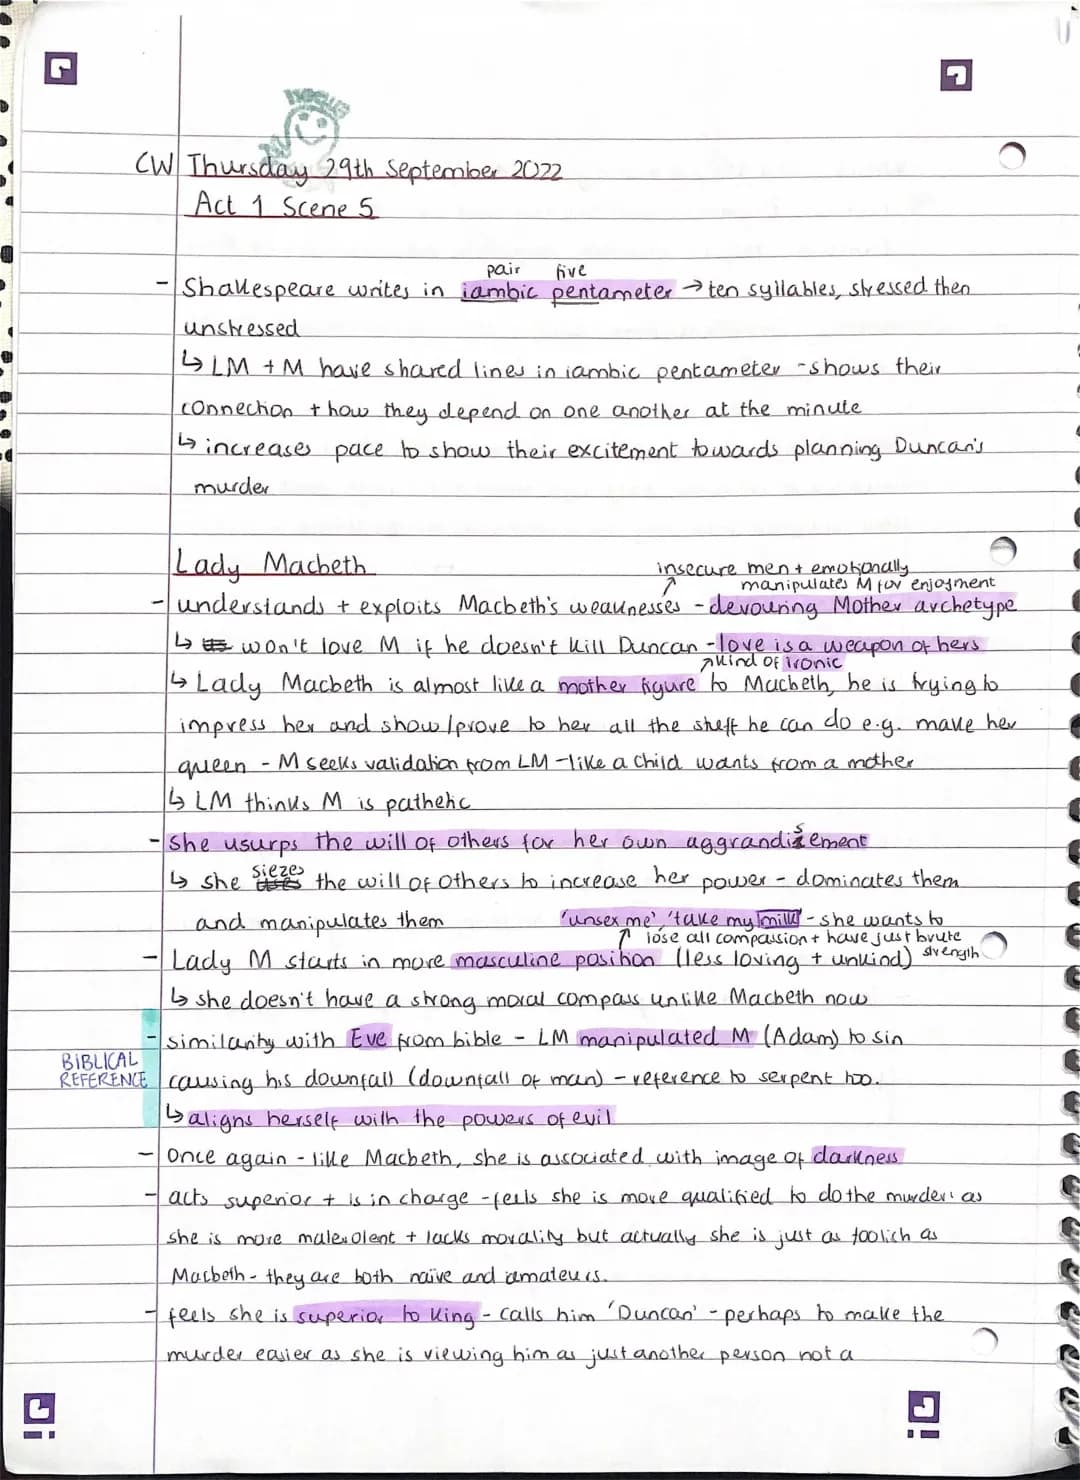 CW Thursday 29th September 2022
Act 1 Scene 5
pair five
- Shakespeare writes in iambic pentameter → ten syllables, stressed then
unstressed
↳ LM + M have shared lines in iambic pentameter - shows their
connection + how they depend on one another at the minute
↳ increases pace to show their excitement towards planning Duncan's
murder
Lady Macbeth
insecure men + emotionally
manipulates M for enjoyment
- understands + exploits Macbeth's weaknesses - devouring Mother archetype
↳ won't love M if he doesn't kill Duncan - love is a weapon of hers
↗ kind of ironic
↳ Lady Macbeth is almost like a mother figure to Macbeth, he is trying to
impress her and show/prove to her all the stuff he can do e.g. make her
queen - M seeks validation from LM - like a child wants from a mother
↳ LM thinks M is pathetic
- She usurps the will of others for her own aggrandisement
↳ she siezes the will of others to increase her power - dominates them
and manipulates them
'unsex me', 'take my milk' - she wants to
↑ lose all compassion + have just brute
strength
- Lady M starts in more masculine position (less loving + unkind)
↳ she doesn't have a strong moral compass unlike Macbeth now
- similarity with Eve from bible - LM manipulated M (Adam) to sin
BIBLICAL
REFERENCE
causing his downfall (downfall of man) - reference to serpent too.
↳ aligns herself with the powers of evil
- Once again - like Macbeth, she is associated with image of darkness
- acts superior + is in charge - feels she is more qualified to do the murder: as
she is more malevolent + lacks morality but actually she is just as foolich as
Macbeth - they are both naïve and amateurs.
- feels she is superior to King - calls him 'Duncan' - perhaps to make the
murder easier as she is viewing him as just another person not a